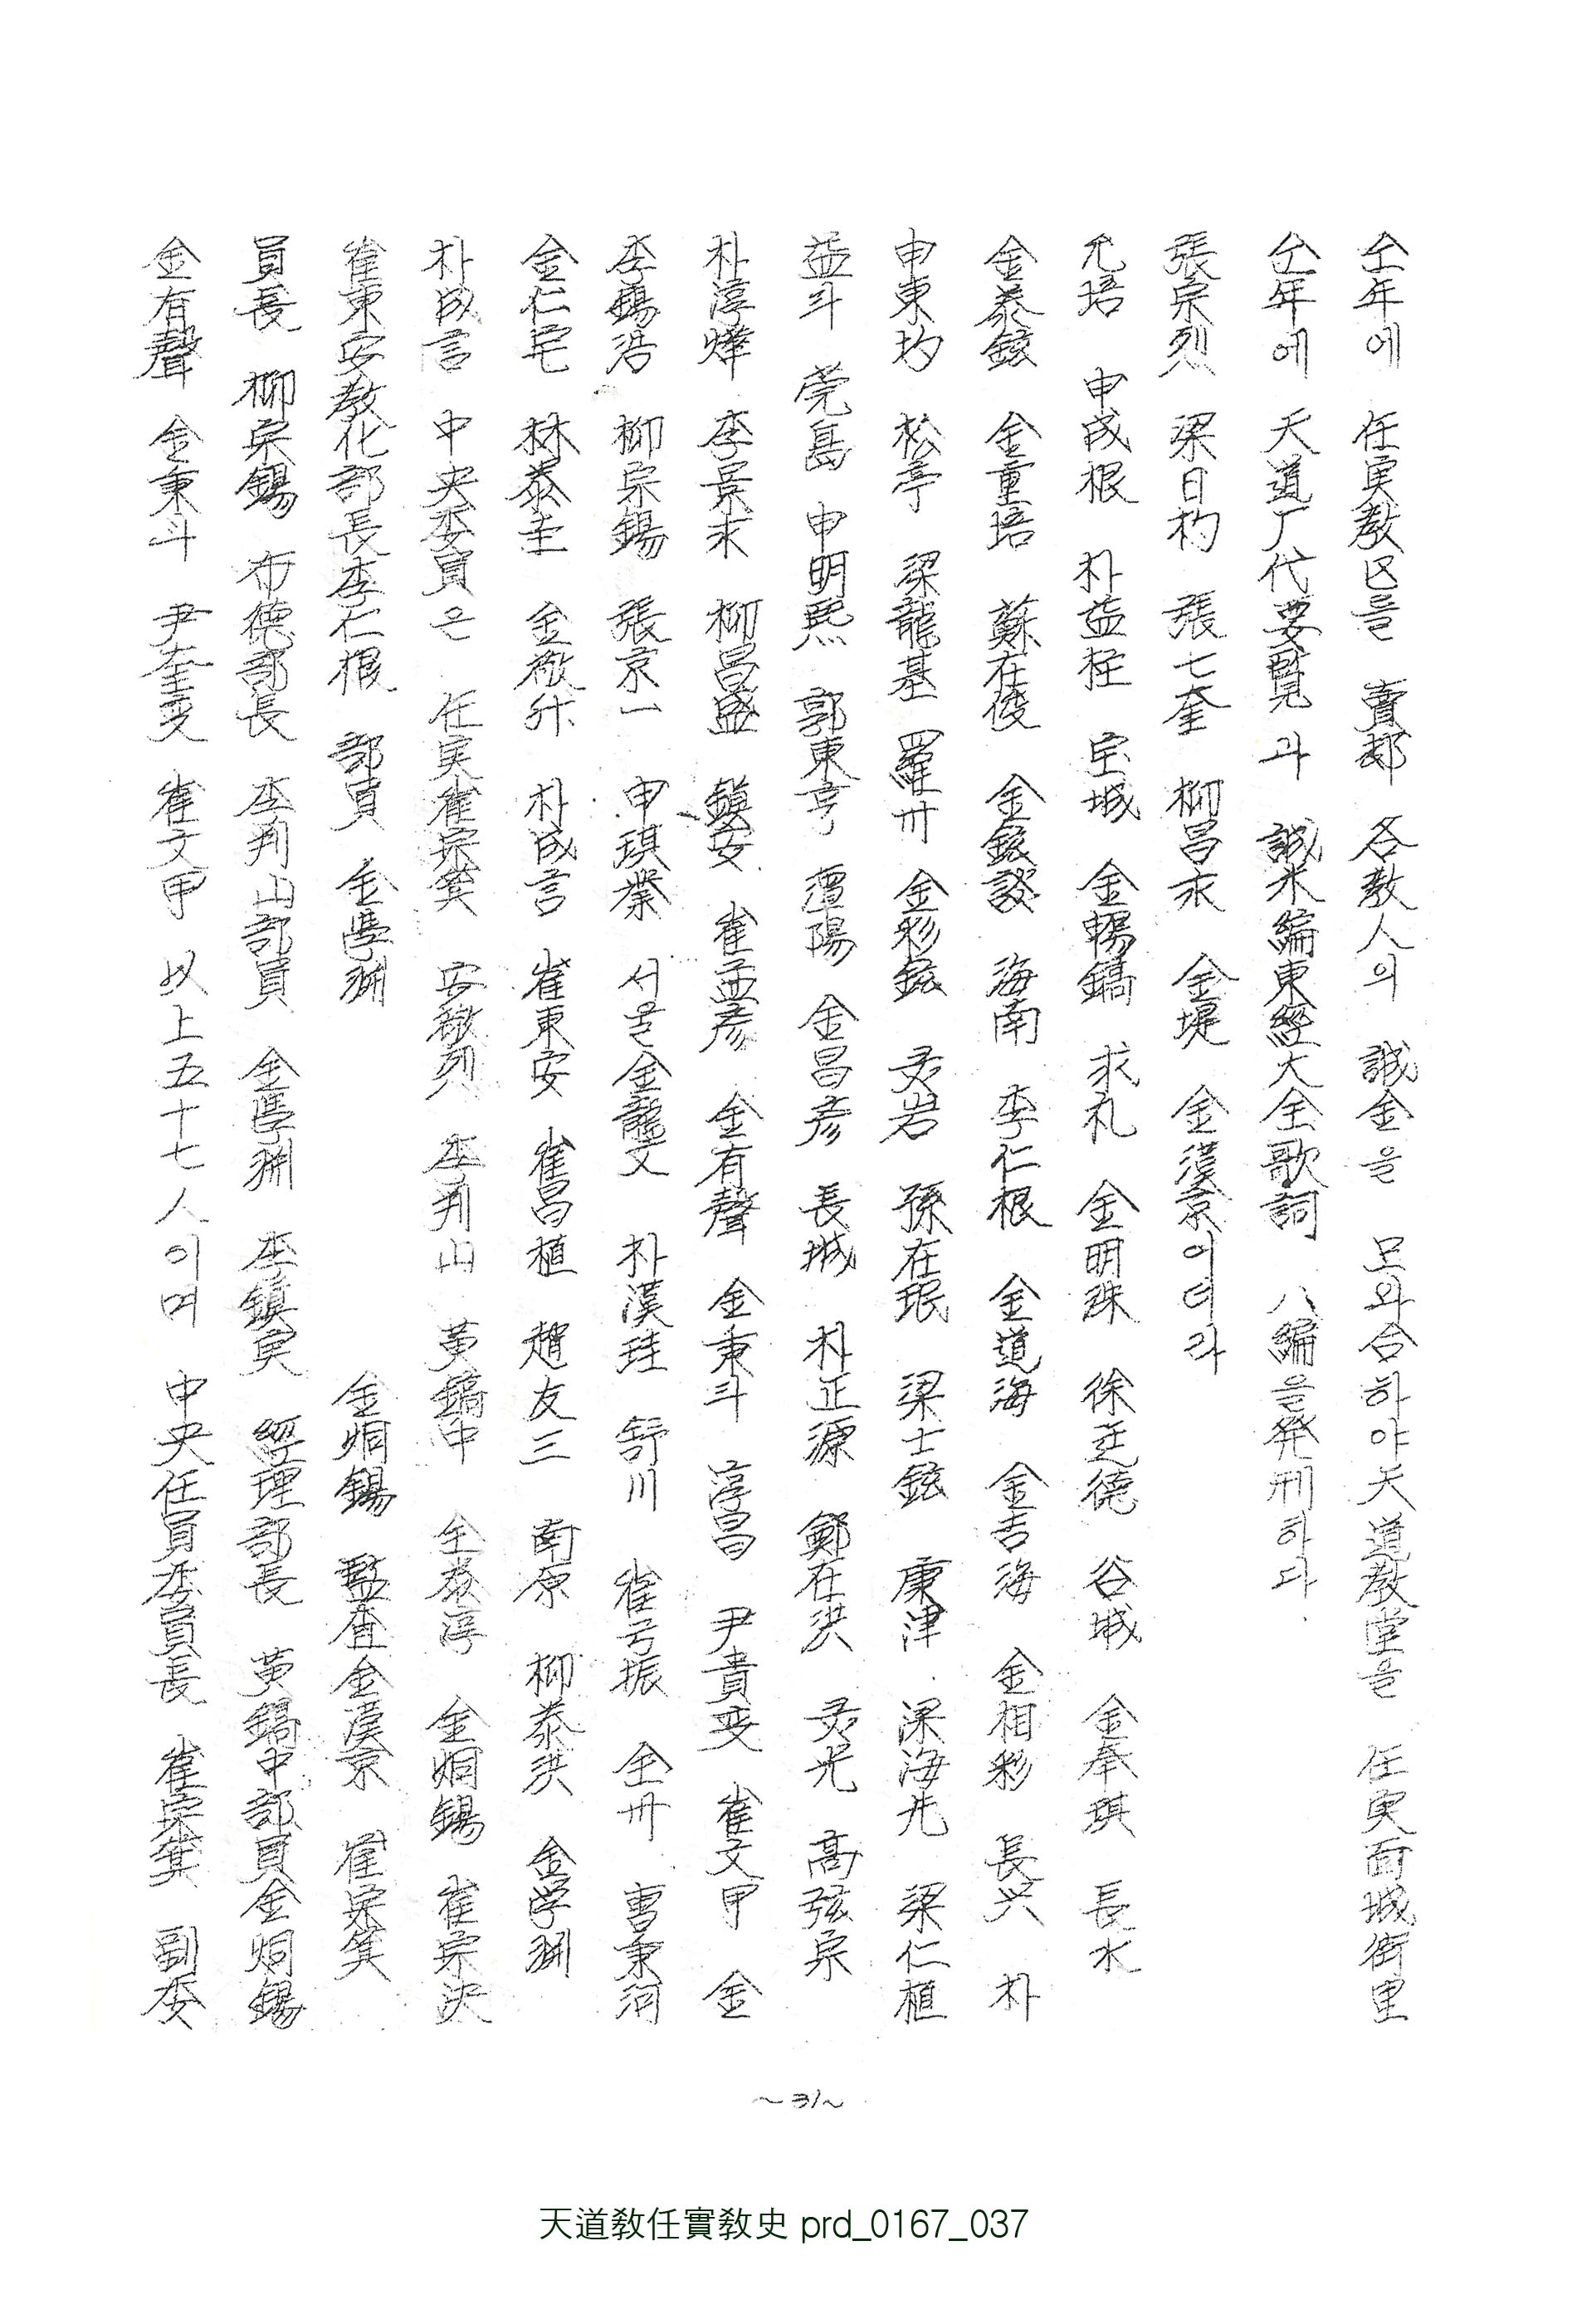 仝年에 任実教区를 賣却 各教人의 誠金을 모와合하야天道教堂을 任実面城街里
仝年에 天道厂代要覧과 誠米編東經大全歌詞 八編을発刑하다.
張宗烈 梁日杓 張七奎 柳昌衣 金堤 金漢京이더라
允培 申成根 朴益柱 宝城 金暢鎬 求礼 金明珠 徐廷德 谷城 金奉琪 長水
金泰鉉 金重培 蘇在俊 金鉉談 海南 李仁根 金道海 金吉海 金相彩 長兴 朴
申東均 松亭 梁龍基 羅州 金彩鉉 灵岩 孫在珉 梁士鉉 康津 梁海光 梁仁植
益斗 莞島 申明熙 郭東亨 潭陽 金昌彦 長城 朴正源 鄭在洪 灵光 高弦宗
朴淳燁 李景求 柳昌盛 鎮安 崔孟彦 金有聲 金秉斗 淳昌 尹貴変 崔文甲 金
李錫浩 柳宗錫 張京一 申琪業 서울金龍文 朴漢珪 舒川 崔弓振 全州 曺秉河
金仁宅 林泰圭 金徹升 朴成言 崔東安 崔昌植 趙友三 南原 柳泰洪 金学渊
朴成言 中央委員은 任実崔宗箕 安徹烈 李判山 黃鎬中 全泰淳 金炯錫 崔宗決
崔東安教化部長李仁根 部員 金學渊 金炯錫 監査金漢京 崔宗箕
員長 柳宗錫 布德部長 李判山部員 金學渊 李鎮実 經理部長 黃鎬中部員金炯錫
金有聲 金秉斗 尹奎変 崔文甲 以上五十七人이며 中央任員委員長 崔宗箕 副委
~31~
天道敎任實敎史 prd_0167_037